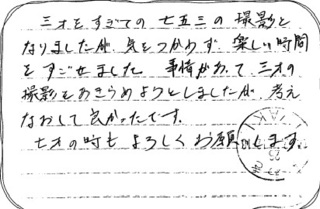 三才をすぎての七五三の撮影と
なりましたが、気をつかわず、楽しい時間
をすごせました。事情があって三才の
撮影をあきらめようとしましたが、考え
なおして良かったです。
七才の時もよろしくお願いします。